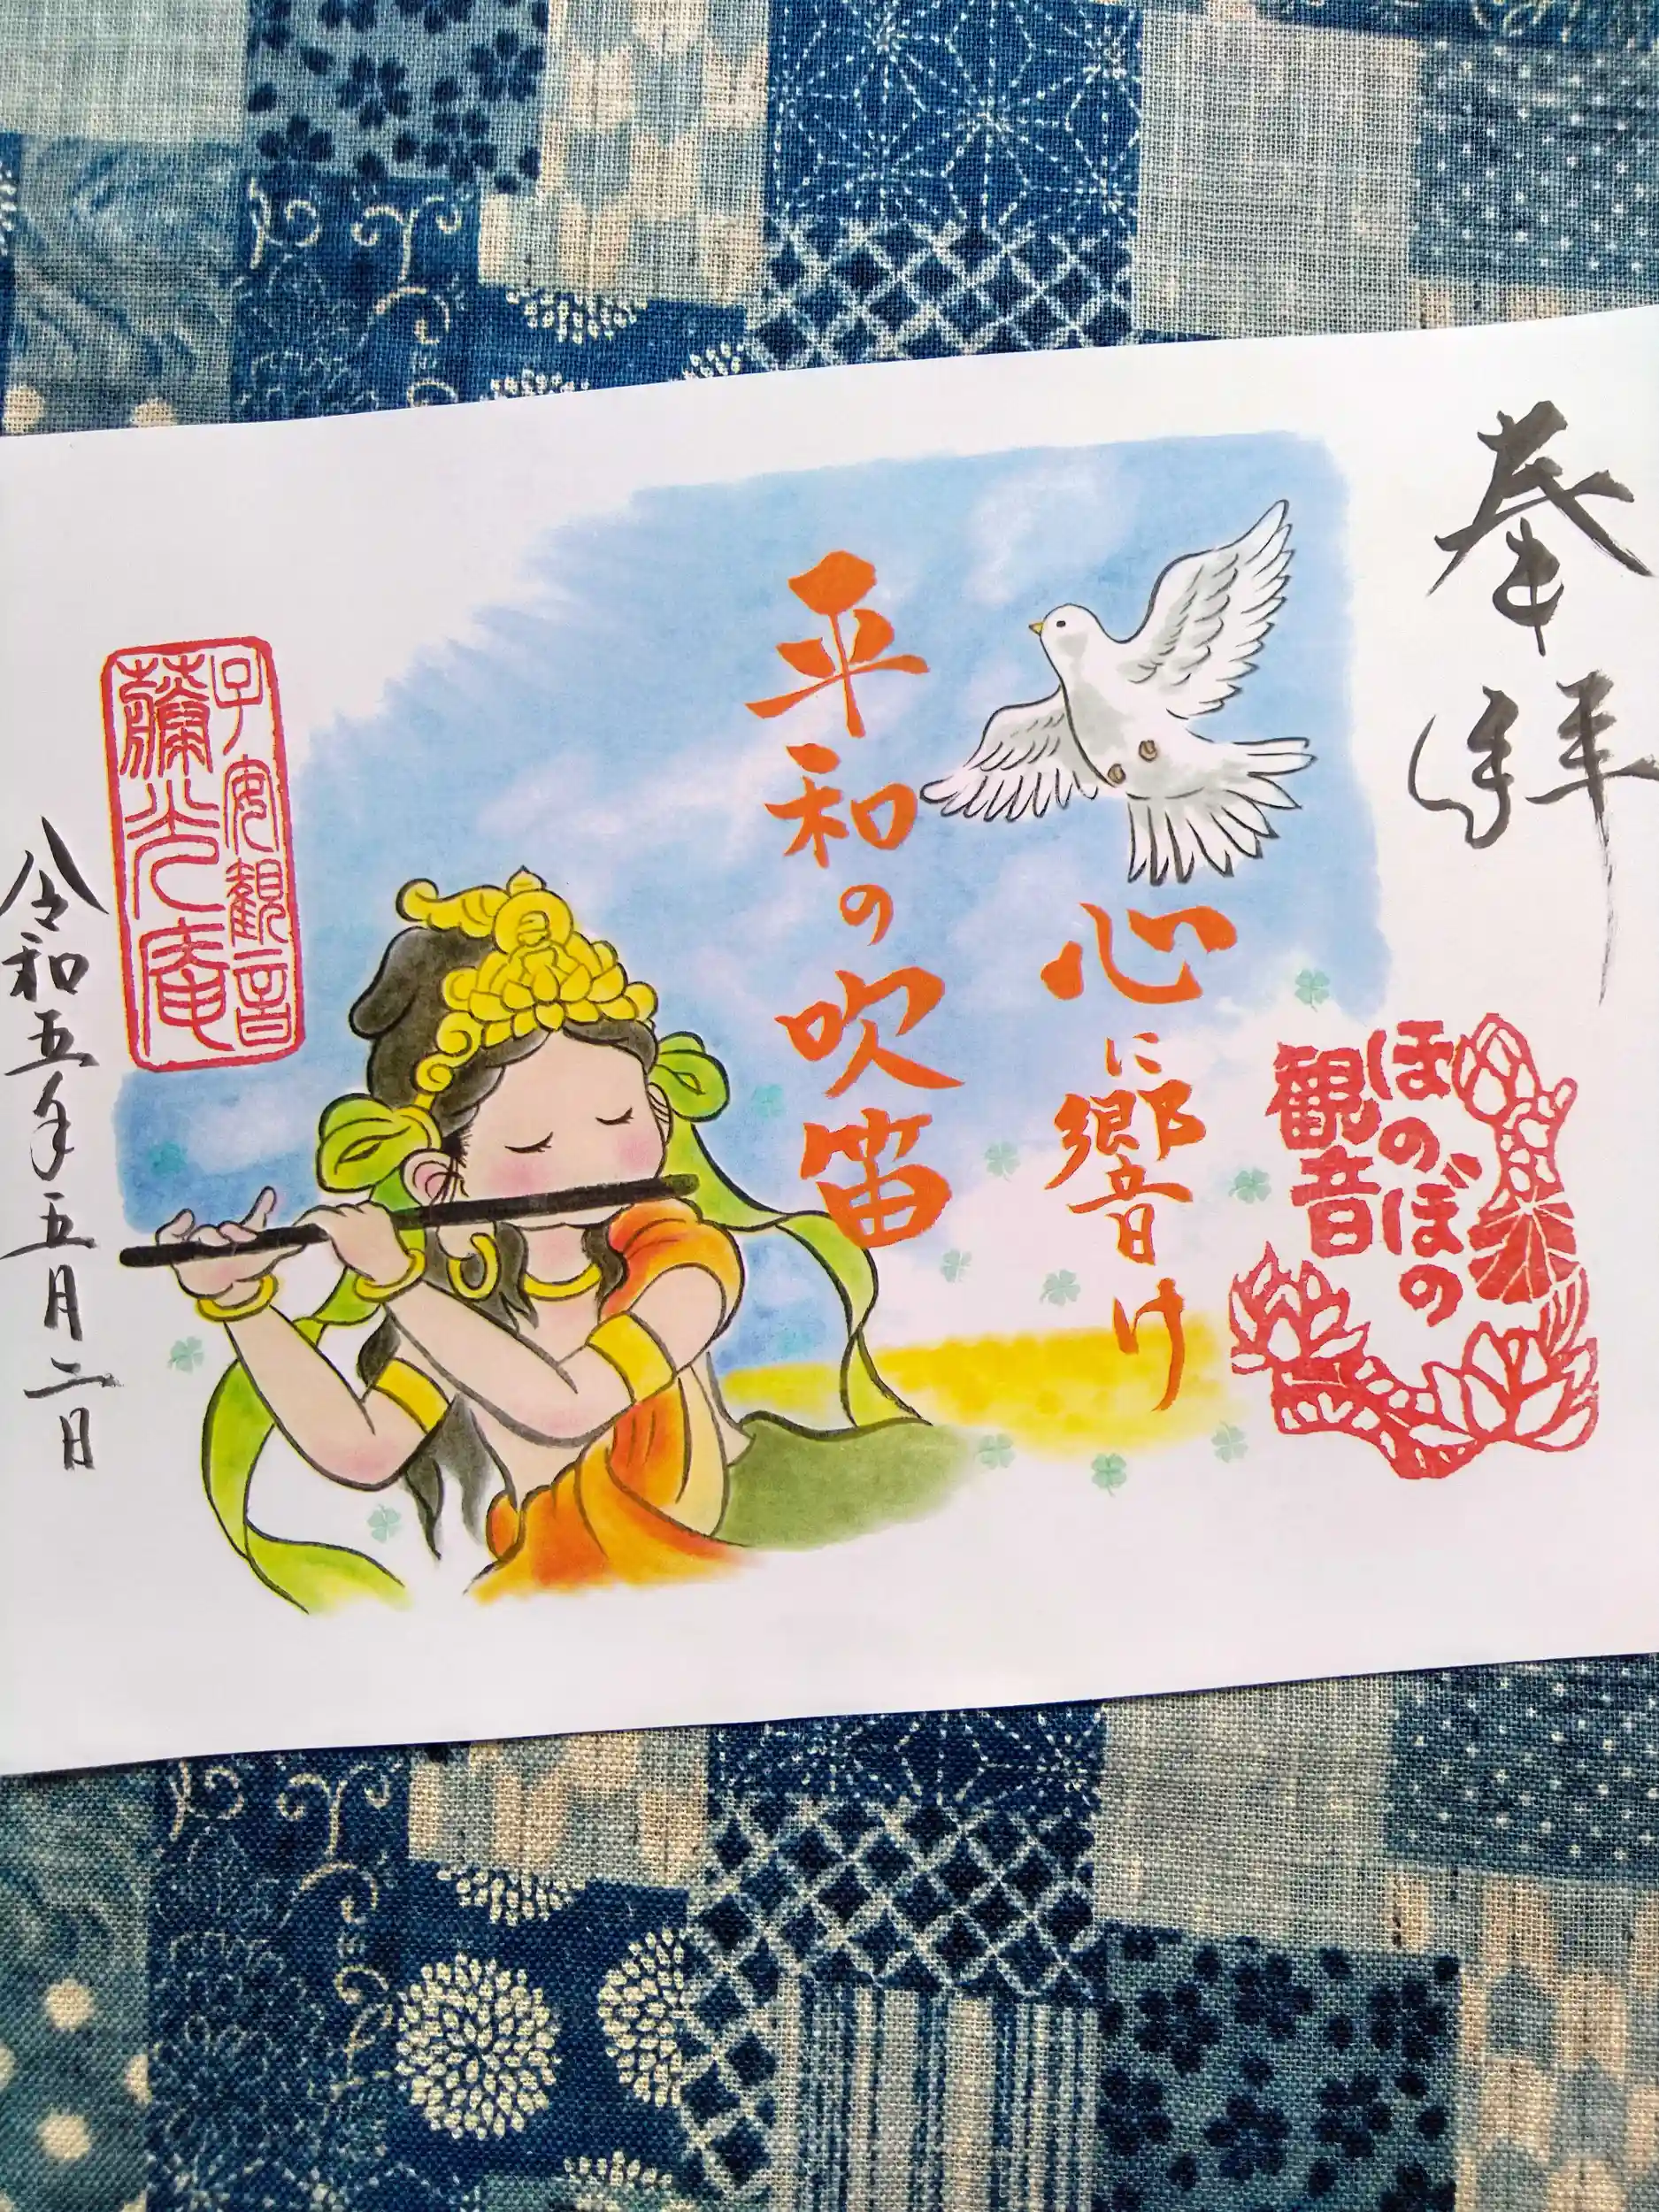 奉拝
ほのぼの
観音
心に響け
平和の吹笛
子安観音
薬光庵
令和五年五月二日